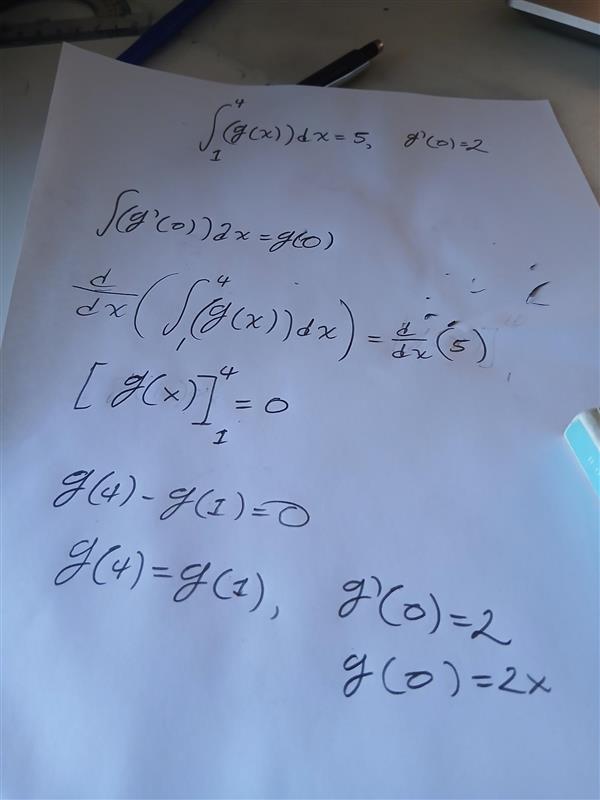 ∫₁⁴(g(x))dx=5, g'(0)=2
∫(g'(0))dx=g(0)
d/dx(∫₁⁴(g(x))dx)=d/dx(5)
[g(x)]₁⁴=0
g(4)-g(1)=0
g(4)=g(1), g'(0)=2
g(0)=2x